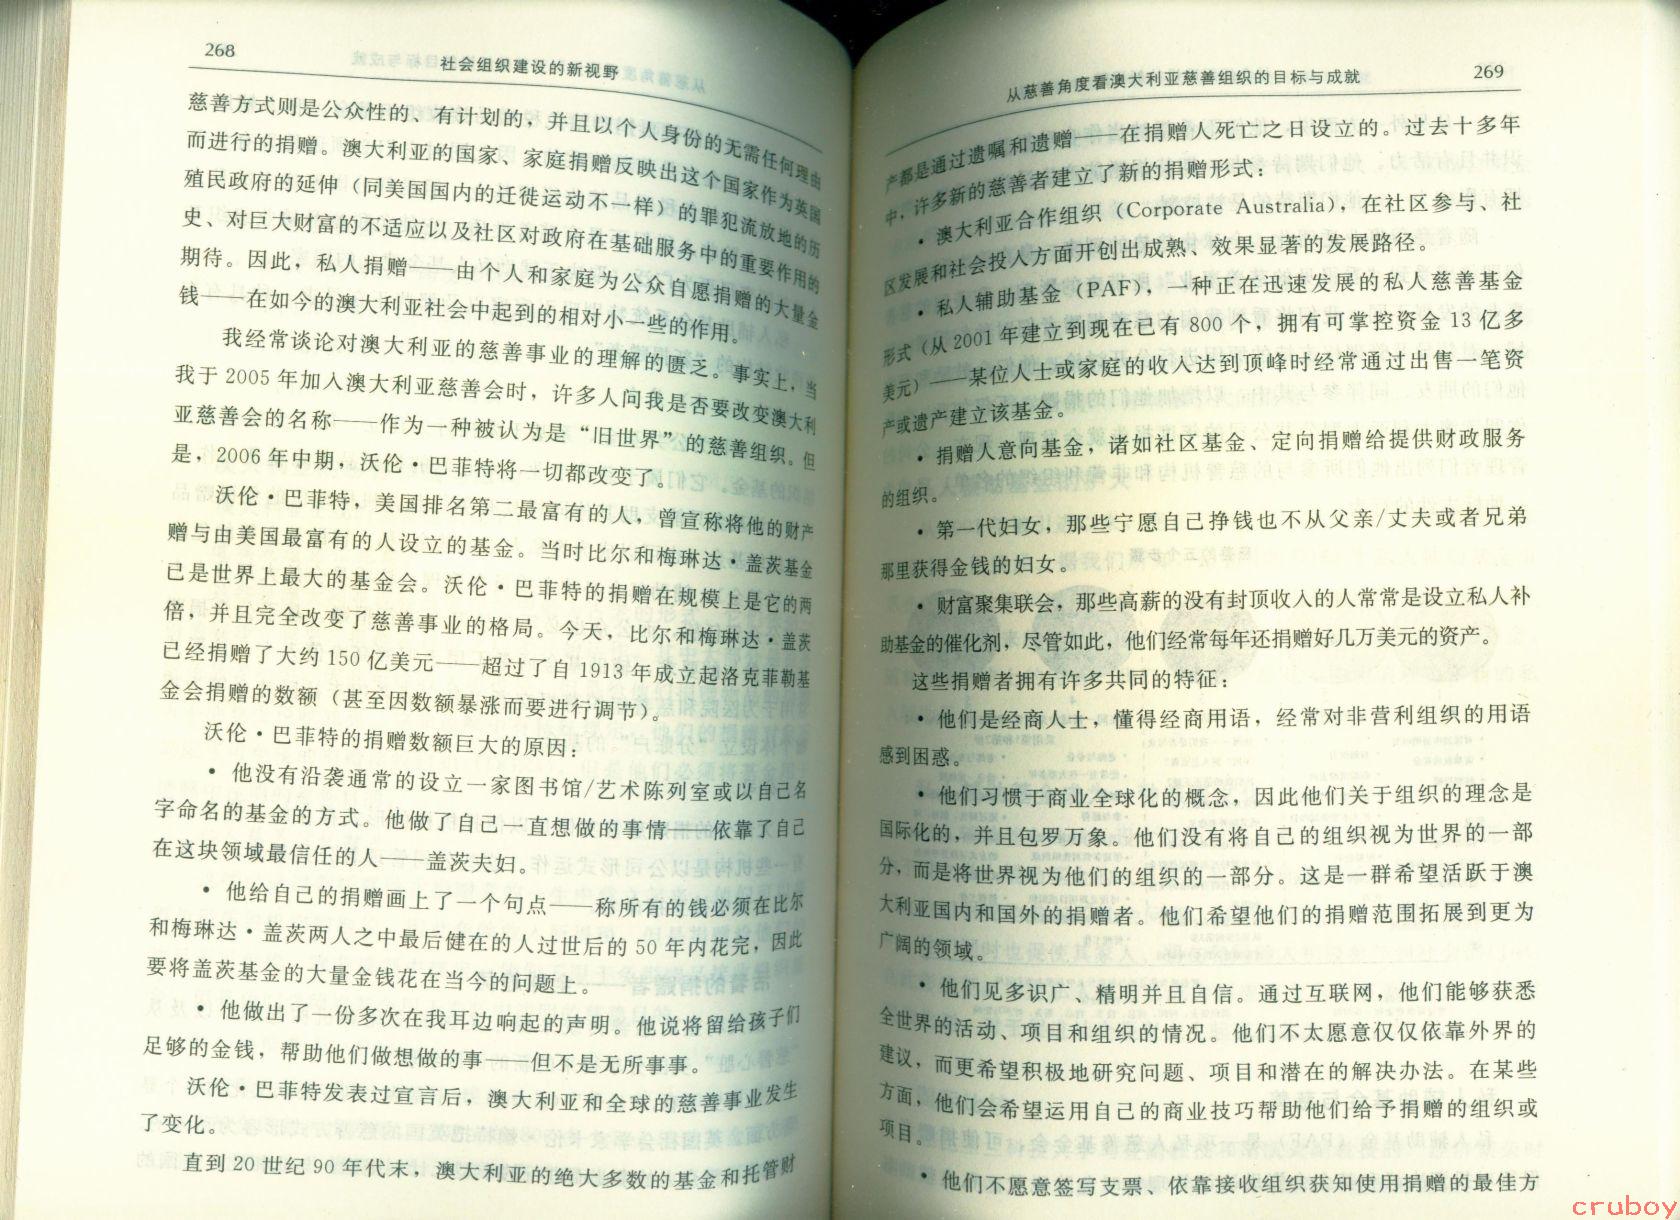 268
社会组织建设的新视野
慈善方式则是公众性的、有计划的，并且以个人身份的无需任何理由
而进行的捐赠。澳大利亚的国家、家庭捐赠反映出这个国家作为英国
殖民政府的延伸（同美国国内的迁徙运动不一样）的罪犯流放地的历
史、对巨大财富的不适应以及社区对政府在基础服务中的重要作用的
期待。因此，私人捐赠——由个人和家庭为公众自愿捐赠的大量金
钱——在如今的澳大利亚社会中起到的相对小一些的作用。
我经常谈论对澳大利亚的慈善事业的理解的匮乏。事实上，当
我于 2005 年加入澳大利亚慈善会时，许多人问我是否要改变澳大利
亚慈善会的名称——作为一种被认为是“旧世界”的慈善组织。但
是，2006 年中期，沃伦·巴菲特将一切都改变了。
沃伦·巴菲特，美国排名第二最富有的人，曾宣称将他的财产
赠与由美国最富有的人设立的基金。当时比尔和梅琳达·盖茨基金
已是世界上最大的基金会。沃伦·巴菲特的捐赠在规模上是它的两
倍，并且完全改变了慈善事业的格局。今天，比尔和梅琳达·盖茨
已经捐赠了大约 150 亿美元——超过了自 1913 年成立起洛克菲勒基
金会捐赠的数额（甚至因数额暴涨而要进行调节）。
沃伦·巴菲特的捐赠数额巨大的原因：
• 他没有沿袭通常的设立一家图书馆/艺术陈列室或以自己名
字命名的基金的方式。他做了自己一直想做的事情——依靠了自己
在这块领域最信任的人——盖茨夫妇。
• 他给自己的捐赠画上了一个句点——称所有的钱必须在比尔
和梅琳达·盖茨两人之中最后健在的人过世后的 50 年内花完，因此
要将盖茨基金的大量金钱花在当今的问题上。
• 他做出了一份多次在我耳边响起的声明。他说将留给孩子们
足够的金钱，帮助他们做想做的事——但不是无所事事。
沃伦·巴菲特发表过宣言后，澳大利亚和全球的慈善事业发生
了变化。
直到 20 世纪 90 年代末，澳大利亚的绝大多数的基金和托管财
从慈善角度看澳大利亚慈善组织的目标与成就
269
产都是通过遗嘱和遗赠——在捐赠人死亡之日设立的。过去十多年
中，许多新的慈善者建立了新的捐赠形式：
• 澳大利亚合作组织（Corporate Australia），在社区参与、社
区发展和社会投入方面开创出成熟、效果显著的发展路径。
• 私人辅助基金（PAF），一种正在迅速发展的私人慈善基金
形式（从 2001 年建立到现在已有 800 个，拥有可掌控资金 13 亿多
美元）——某位人士或家庭的收入达到顶峰时经常通过出售一笔资
产或遗产建立该基金。
• 捐赠人意向基金，诸如社区基金、定向捐赠给提供财政服务
的组织。
• 第一代妇女，那些宁愿自己挣钱也不从父亲/丈夫或者兄弟
那里获得金钱的妇女。
• 财富聚集联会，那些高薪的没有封顶收入的人常常是设立私人补
助基金的催化剂，尽管如此，他们经常每年还捐赠好几万美元的资产。
这些捐赠者拥有许多共同的特征：
• 他们是经商人士，懂得经商用语，经常对非营利组织的用语
感到困惑。
• 他们习惯于商业全球化的概念，因此他们关于组织的理念是
国际化的，并且包罗万象。他们没有将自己的组织视为世界的一部
分，而是将世界视为他们的组织的一部分。这是一群希望活跃于澳
大利亚国内和国外的捐赠者。他们希望他们的捐赠范围拓展到更为
广阔的领域。
• 他们见多识广、精明并且自信。通过互联网，他们能够获悉
全世界的活动、项目和组织的情况。他们不太愿意仅仅依靠外界的
建议，而更希望积极地研究问题、项目和潜在的解决办法。在某些
方面，他们会希望运用自己的商业技巧帮助他们给予捐赠的组织或
项目。
• 他们不愿意签写支票、依靠接收组织获知使用捐赠的最佳方
cruboy